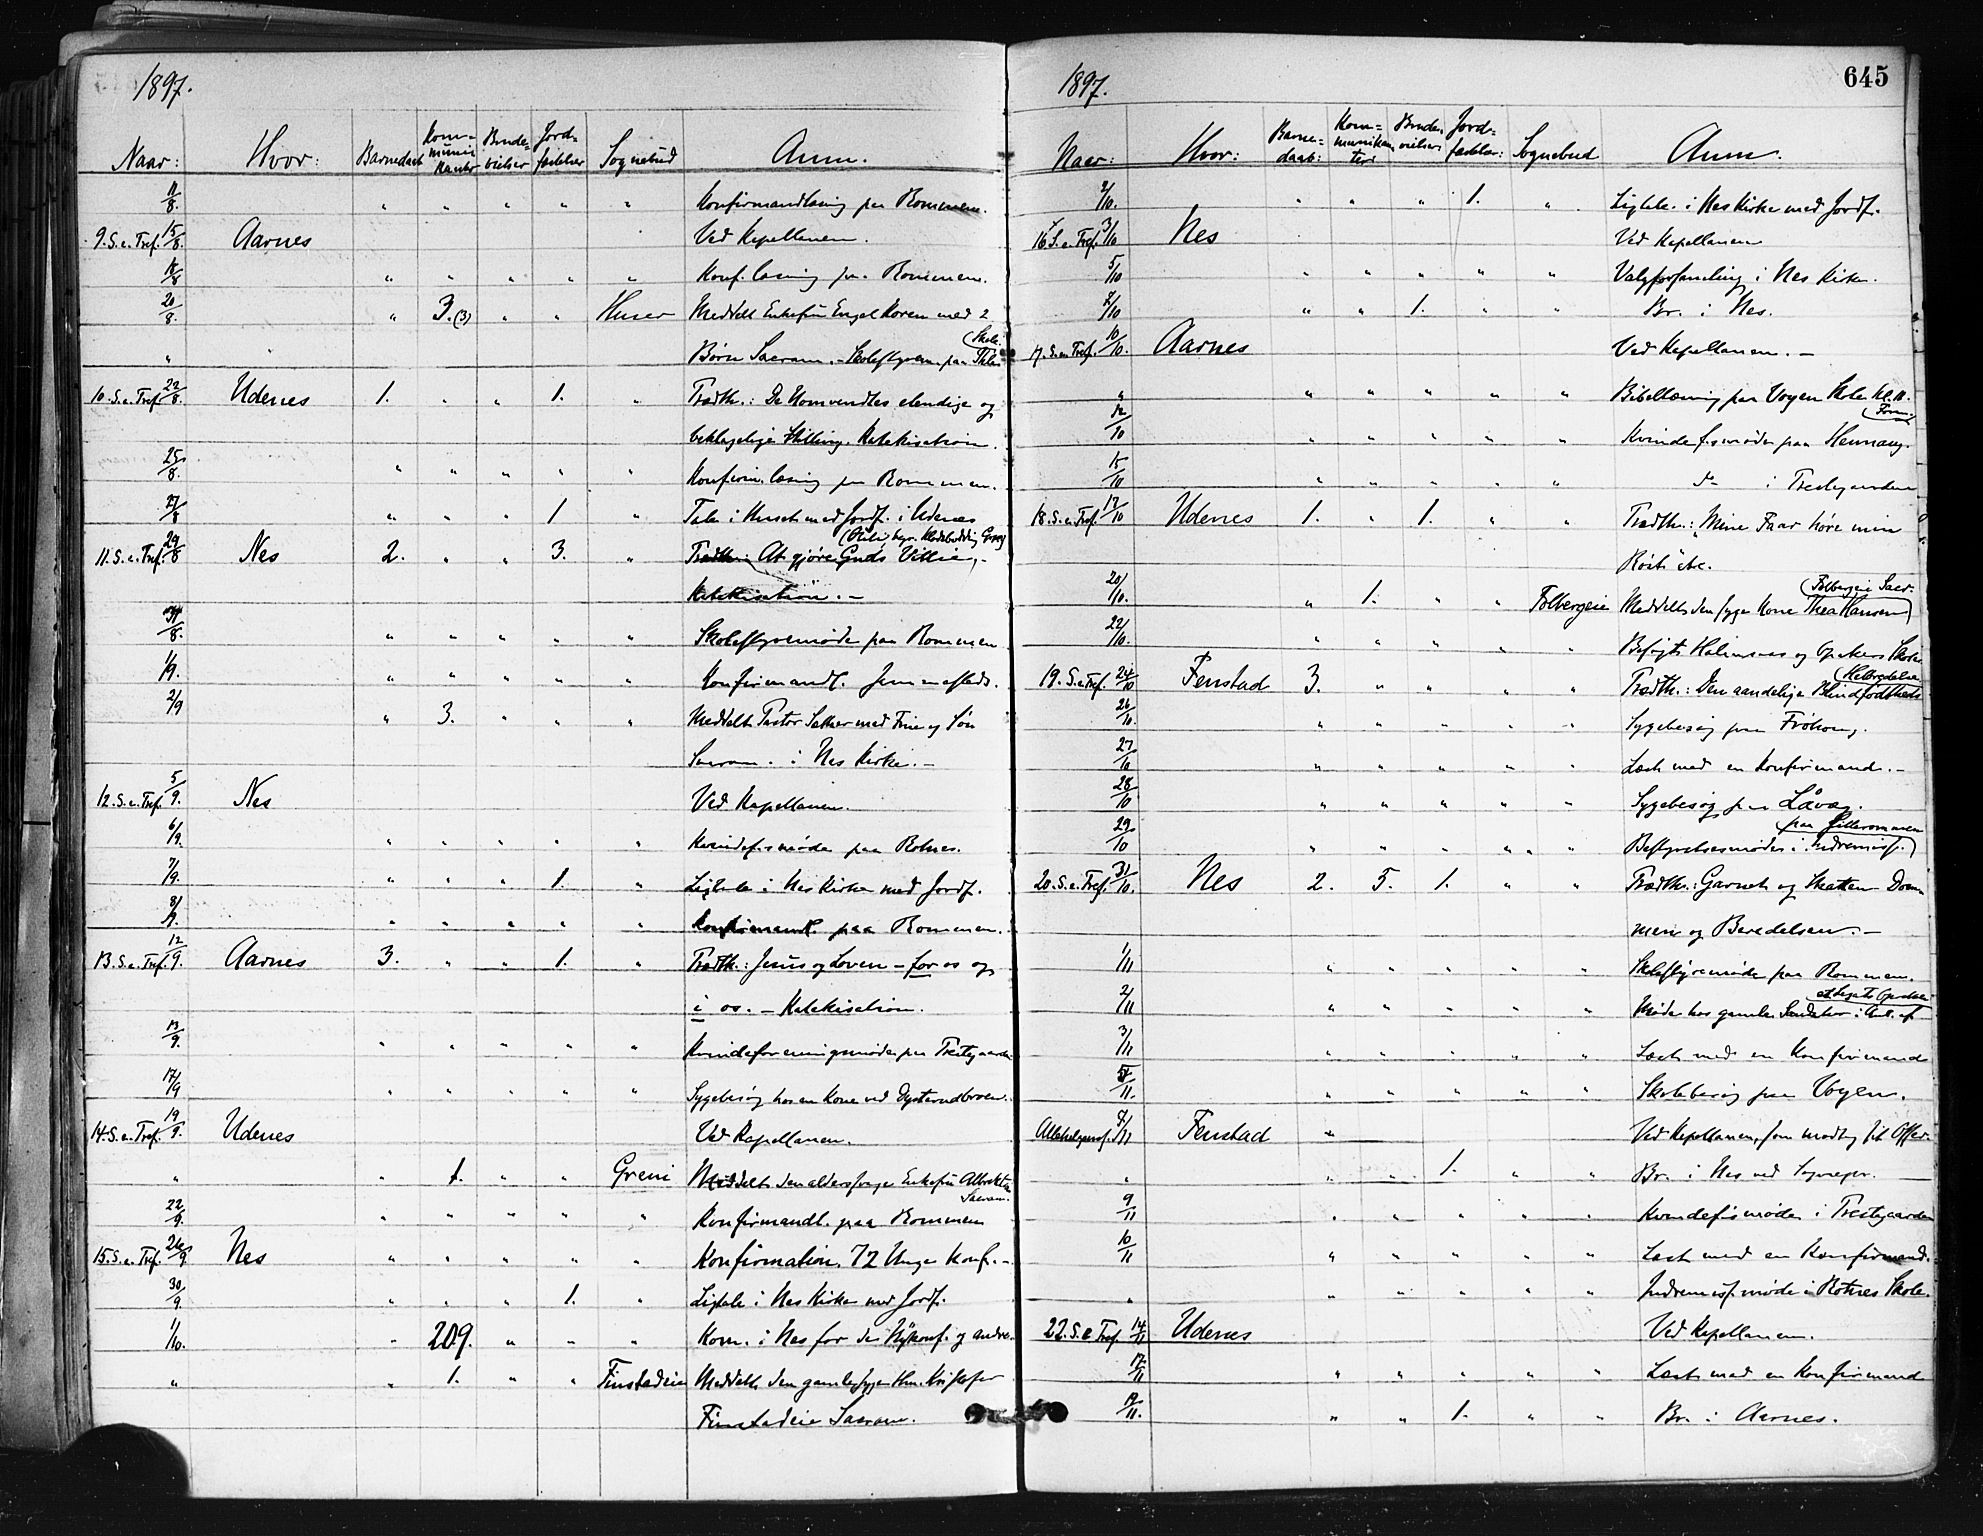 1897.
Naar: Hvor: Barnedaab Kommunikanter Brudevielser Jordfæstelser Sognebud Anm.
11/8. " " " " " Konfirmandlæsning paa Rommen.
9. S. e. Tref. 15/8. Aarnes Ved Kapellanen.
18/8 " " " " " Konf. læsning paa Rommen.
20/8. " 3. (3) " " Huser Meddelt Enkefru Engel Koren med 2
" " Børn Sacram. – Skolestyrem. paa Skole
10. S. e. Tref. 22/8. Udenes 1. " " 1. " Prædth.: De Uomvendtes elendige og
beklagelige Stilling. Katekisation.
25/8. " " " " " Konfirm. læsning paa Rommen.
27/8 " " " 1 " Tale i Huset med Jordf. i Udenes
11. S. e. Tref. 29/8 Nes 2. " " 3. " Prædth.: At gjøre Guds Villie, –
Katekisation. –
31/8. " " " " " Skolestyremøde paa Rommen
1/9. " " " " " Konfirmandl.
2/9 " 3. " " " Meddelt Pastor Sæther med Frue og Søn
Sacram. i Nes Kirke. –
12. S. e. Tref. 5/9. Nes Ved Kapellanen.
6/9. " " " " " Kvindef.smøde paa Rotnes.
7/9. " " " 1. " Ligtale i Nes Kirke med Jordf.
8/9. " " " " " Konfirmandl. paa Rommen.
13. S. e. Tref. 12/9. Aarnes 3. " " 1. " Prædth.: Jesus og Loven – for os og
i os. – Katekisation.
13/9. " " " " " Kvindeforeningsmøde paa Prestegaarden
17/9 " " " " " Sygebesøg hos en Kone ved Dysterudbroen.
14. S. e. Tref. 19/9. Udenes Ved Kapellanen.
" " 1. " " Greni Meddelt den aldersvage Enkefru Albrektsen
Sacram.
22/9. " " " " " Konfirmandl. paa Rommen
15. S. e. Tref. 26/9. Nes " " " " " Konfirmation. 72 Unge Konf. –
30/9. " " " 1. " Ligtale i Nes Kirke med Jordf.
1/10. " 209. " " " Kom. i Nes for de Nykonf. og andre. –
" " 1. " " Finstadeie Meddelt den gamle syge Hm. Kristofer
Finstadeie Sacram.
1897. 645
Naar: Hvor: Barnedaab: Kommunikanter Brudevielser Jordfæstelser: Sognebud Anm.
2/10. " " " 1. " Ligtale i Nes Kirke med Jordf.
16 S. e. Tref. 3/10 Nes Ved Kapellanen
5/10 " " " " " Valgforsamling i Nes Kirke.
7/10 " " 1. " " Br. i Nes.
17. S. e. Tref. 10/10. Aarnes Ved Kapellanen. –
" " " " " " Bibellæsning paa Vogen Skole Kl. 11.
Form.
12/10 " " " " " Kvindef.smøde paa Hennang.
15/10 " " " " " do i Prestegaarden
18. S. e. Tref. 17/10 Udenes 1. " 1. " " Prædth.: "Mine Faar høre min
Røst" etc.
20/10. " 1. " " Folbergeie Meddelt den syge Kone Thea Hansen
Folbergeie Sacr.
22/10. " " " " " Besøgt Holmsaas og Opaker Skole
19. S. e. Tref. 24/10 Fenstad 3. " " " " Prædth.: Den aandelige Blindfødtheds
Helbredelse
26/10. " " " " " Sygebesøg paa Frøhoug.
27/10 " " " " " Læst med en Konfirmand. –
28/10 " " " " " Sygebesøg paa
29/10 " " " " " Bestyrelsesmøde i Indremissj.
paa Lillerommen
20. S. e. Tref. 31/10. Nes 2. 5. 1. " " Prædth.: Garnet og Skatten – Dommen
og Beredelsen. –
1/11 " " " " " Skolestyremøde paa Rommen.
2/11 " " " " " Møde hos gamle i Anl. af
et Legat Opaker
3/11 " " " " " Læst med en Konfirmand
5/11. " " " " " Skolebesøg paa Vogen.
Allehelgensf. 7/11 Fenstad " Ved Kapellanen, som modtog sit Offer.
" " " 1. " " Br. i Nes ved Sognepr.
9/11 " " " " " Kvindef.smøde i Prestegaarden
10/11 " " " " " Læst med en Konfirmand.
" " " " " " Indremissj.møde i Rotnes Skole.
22. S. e Tref. 14/11 Udenes Ved Kapellanen.
17/11 " " " " " Læst med en Konfirmand
19/11. " " 1. " " Br. i Aarnes.